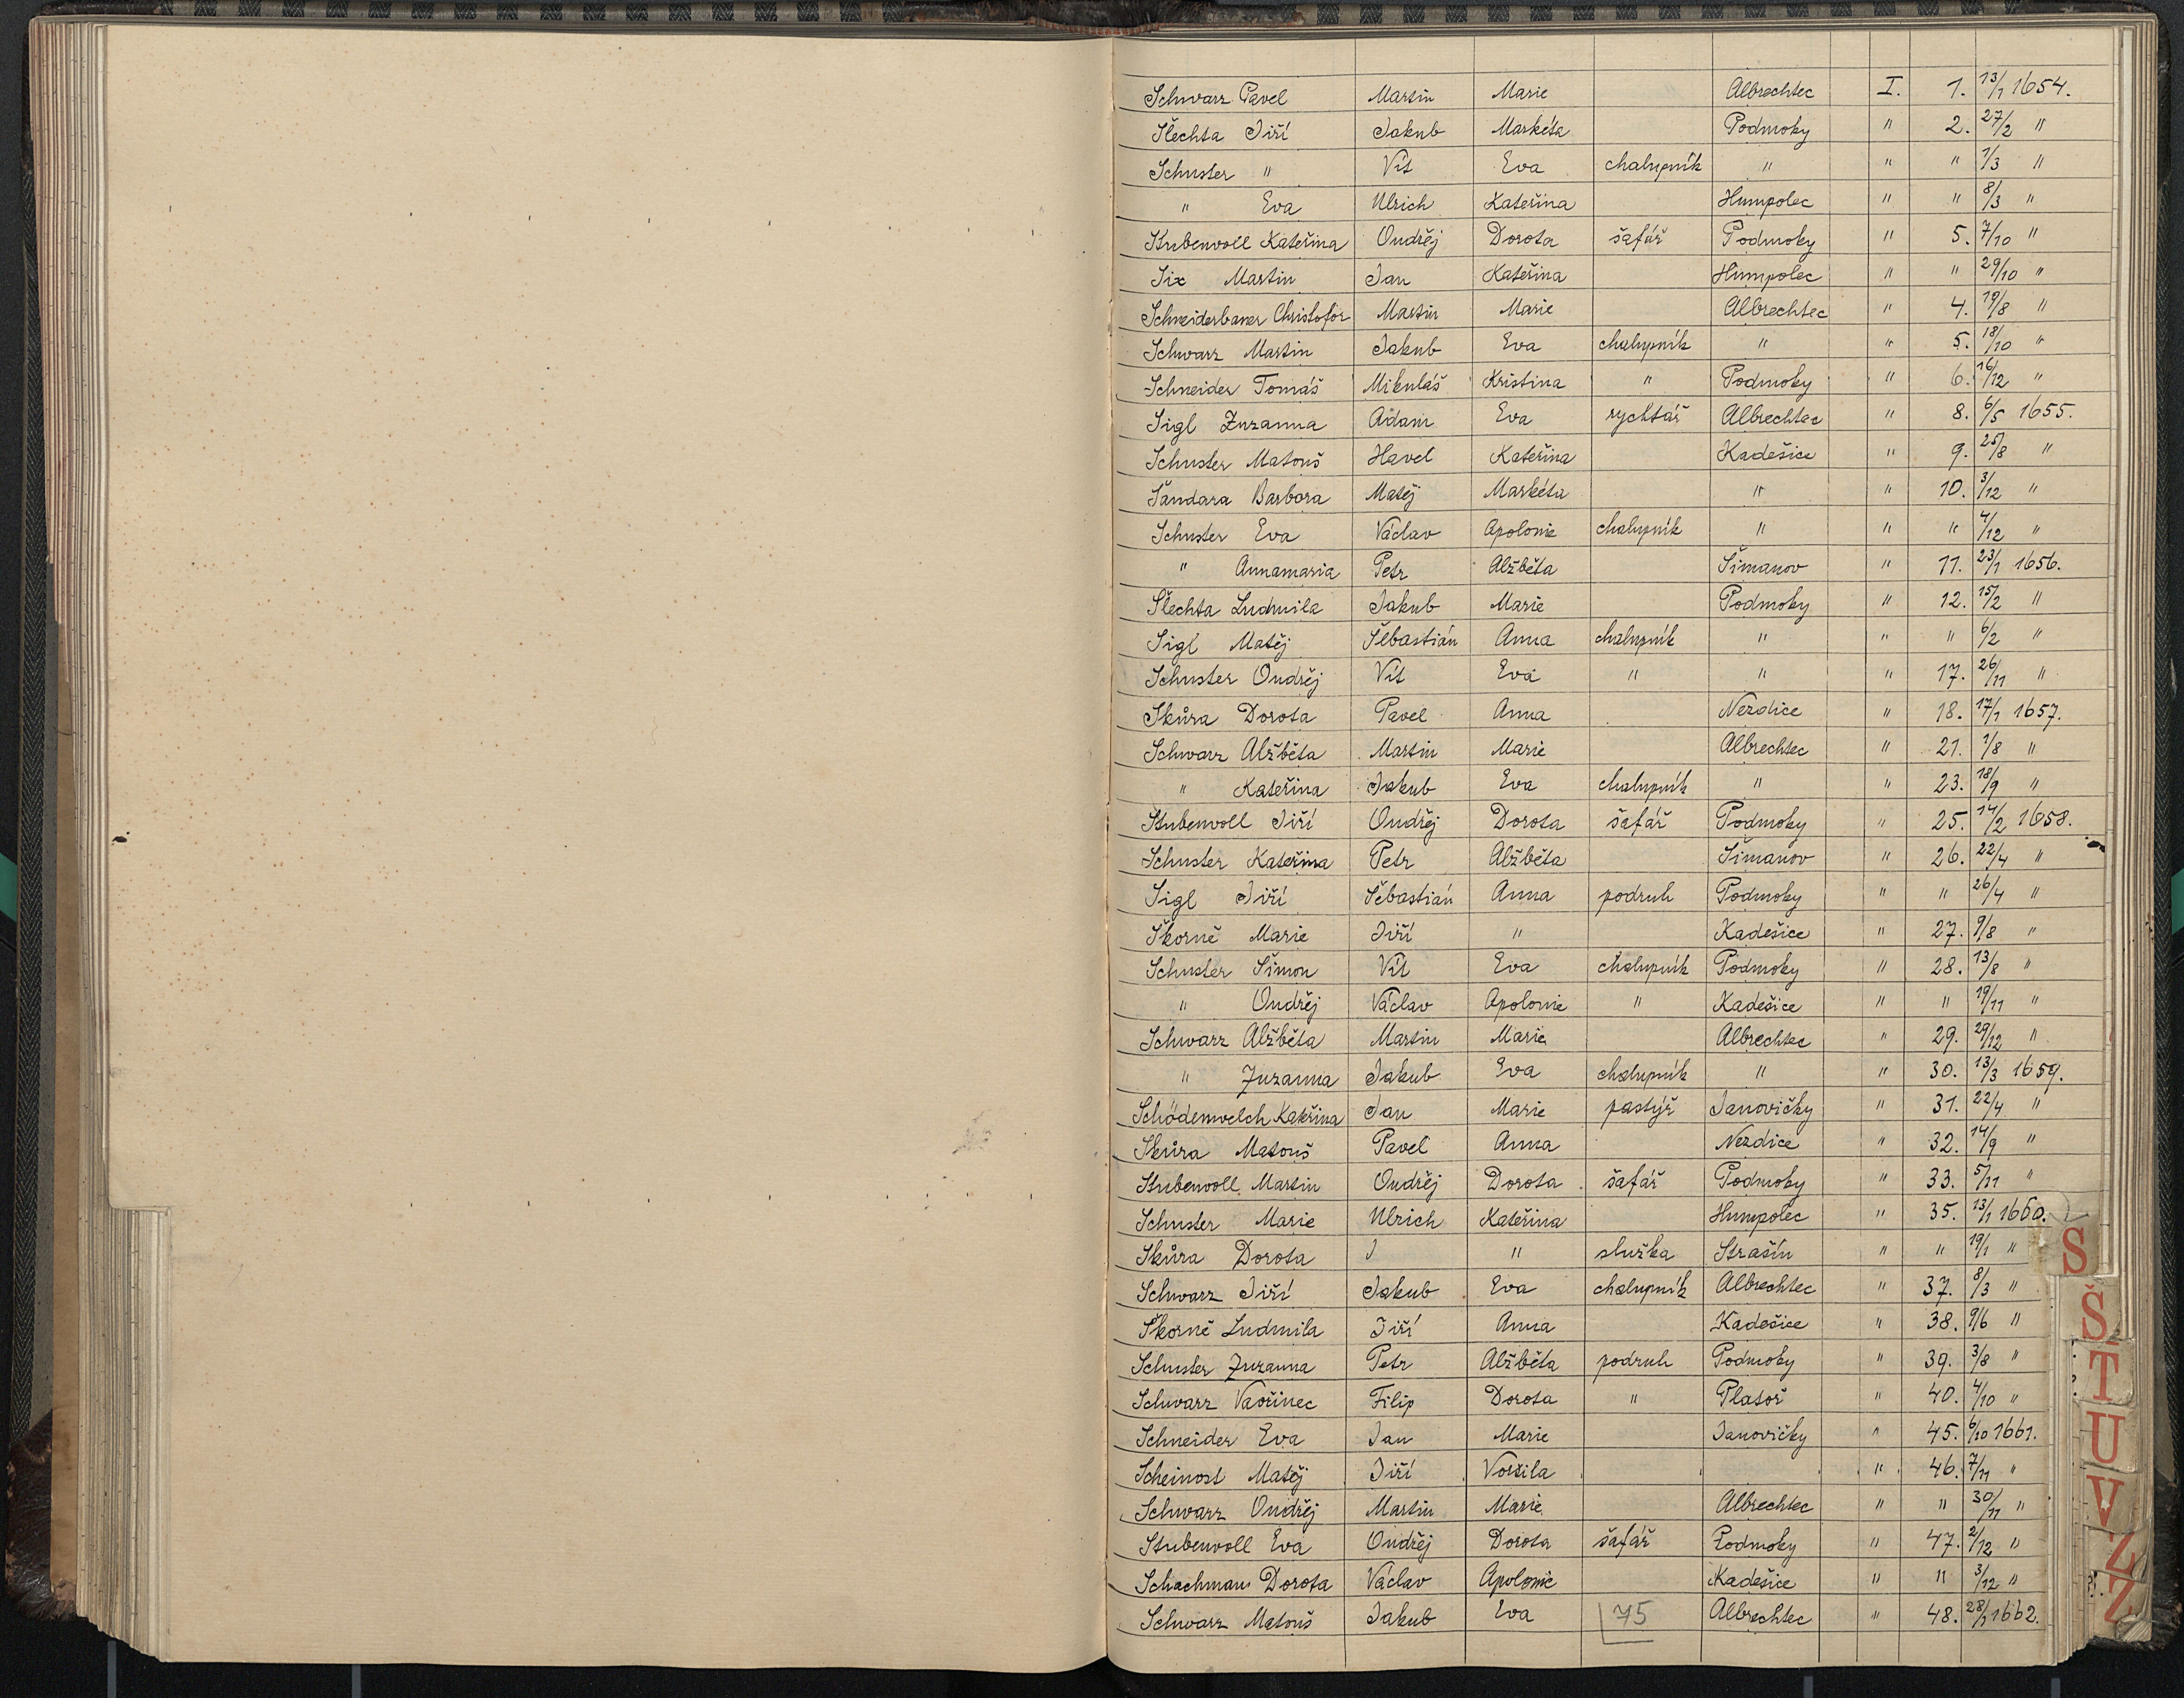 Schwarz Pavel Martin Marie Albrechtec I. 1. 13/1 1654.
Šlechta Jiří Jakub Markéta Podmoky " 2. 27/2 "
Schuster " Vít Eva chalupník " " " 1/3 "
" Eva Ulrich Kateřina Humpolec " " 8/3 "
Stubenvoll Kateřina Ondřej Dorota šafář Podmoky " 5. 7/10 "
Six Martin Jan Kateřina Humpolec " " 29/10 "
Schneiderbauer Christofor Martin Marie Albrechtec " 4. 19/8 "
Schwarz Martin Jakub Eva chalupník " " 5. 18/10 "
Schneider Tomáš Mikuláš Kristina " Podmoky " 6. 16/12 "
Sigl Zuzanna Adam Eva rychtář Albrechtec " 8. 6/5 1655.
Schuster Matouš Havel Kateřina Kadešice " 9. 25/8 "
Šandara Barbora Matěj Markéta " " 10. 3/12 "
Schuster Eva Václav Apolonie chalupník " " " 4/12 "
" Annamaria Petr Alžběta Šimanov " 11. 23/1 1656.
Šlechta Ludmila Jakub Marie Podmoky " 12. 15/2 "
Sigl Matěj Šebastián Anna chalupník " " " 6/2 "
Schuster Ondřej Vít Eva " " " 17. 26/11 "
Skůra Dorota Pavel Anna Nezdice " 18. 17/1 1657.
Schwarz Alžběta Martin Marie Albrechtec " 21. 1/8 "
" Kateřina Jakub Eva chalupník " " 23. 18/9 "
Stubenvoll Jiří Ondřej Dorota šafář Podmoky " 25. 14/2 1658.
Schuster Kateřina Petr Alžběta Šimanov " 26. 22/4 "
Sigl Jiří Šebastián Anna podruh Podmoky " " 26/4 "
Škorně Marie Jiří " Kadešice " 27. 9/8 "
Schuster Šimon Vít Eva chalupník Podmoky " 28. 13/8 "
" Ondřej Václav Apolonie " Kadešice " " 19/11 "
Schwarz Alžběta Martin Marie Albrechtec " 29. 29/12 "
" Zuzanna Jakub Eva chalupník " " 30. 13/3 1659.
Schödenwelch Kateřina Jan Marie pastýř Janovičky " 31. 22/4 "
Skůra Matouš Pavel Anna Nezdice " 32. 14/9 "
Stubenvoll Martin Ondřej Dorota šafář Podmoky " 33. 5/11 "
Schuster Marie Ulrich Kateřina Humpolec " 35. 13/1 1660.
Skůra Dorota J " služka Strašín " " 19/1 "
Schwarz Jiří Jakub Eva chalupník Albrechtec " 37. 8/3 "
Škorně Ludmila Jiří Anna Kadešice " 38. 9/6 "
Schuster Zuzanna Petr Alžběta podruh Podmoky " 39. 3/8 "
Schwarz Vavřinec Filip Dorota " Platoř " 40. 4/10 "
Schneider Eva Jan Marie Janovičky " 45. 6/10 1661.
Scheinost Matěj Jiří Voršila " 46. 7/11 "
Schwarz Ondřej Martin Marie Albrechtec " " 30/11 "
Stubenvoll Eva Ondřej Dorota šafář Podmoky " 47. 2/12 "
Schachman Dorota Václav Apolonie Kadešice " " 3/12 "
Schwarz Matouš Jakub Eva 75 Albrechtec " 48. 28/1 1662.
S
Š
T
U
V
Z
Ž